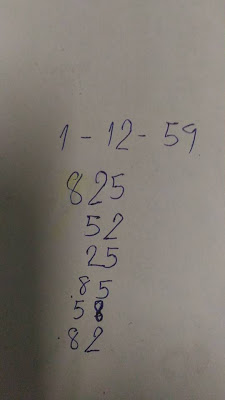 1 - 12 - 59
825
52
25
.85
58
.82